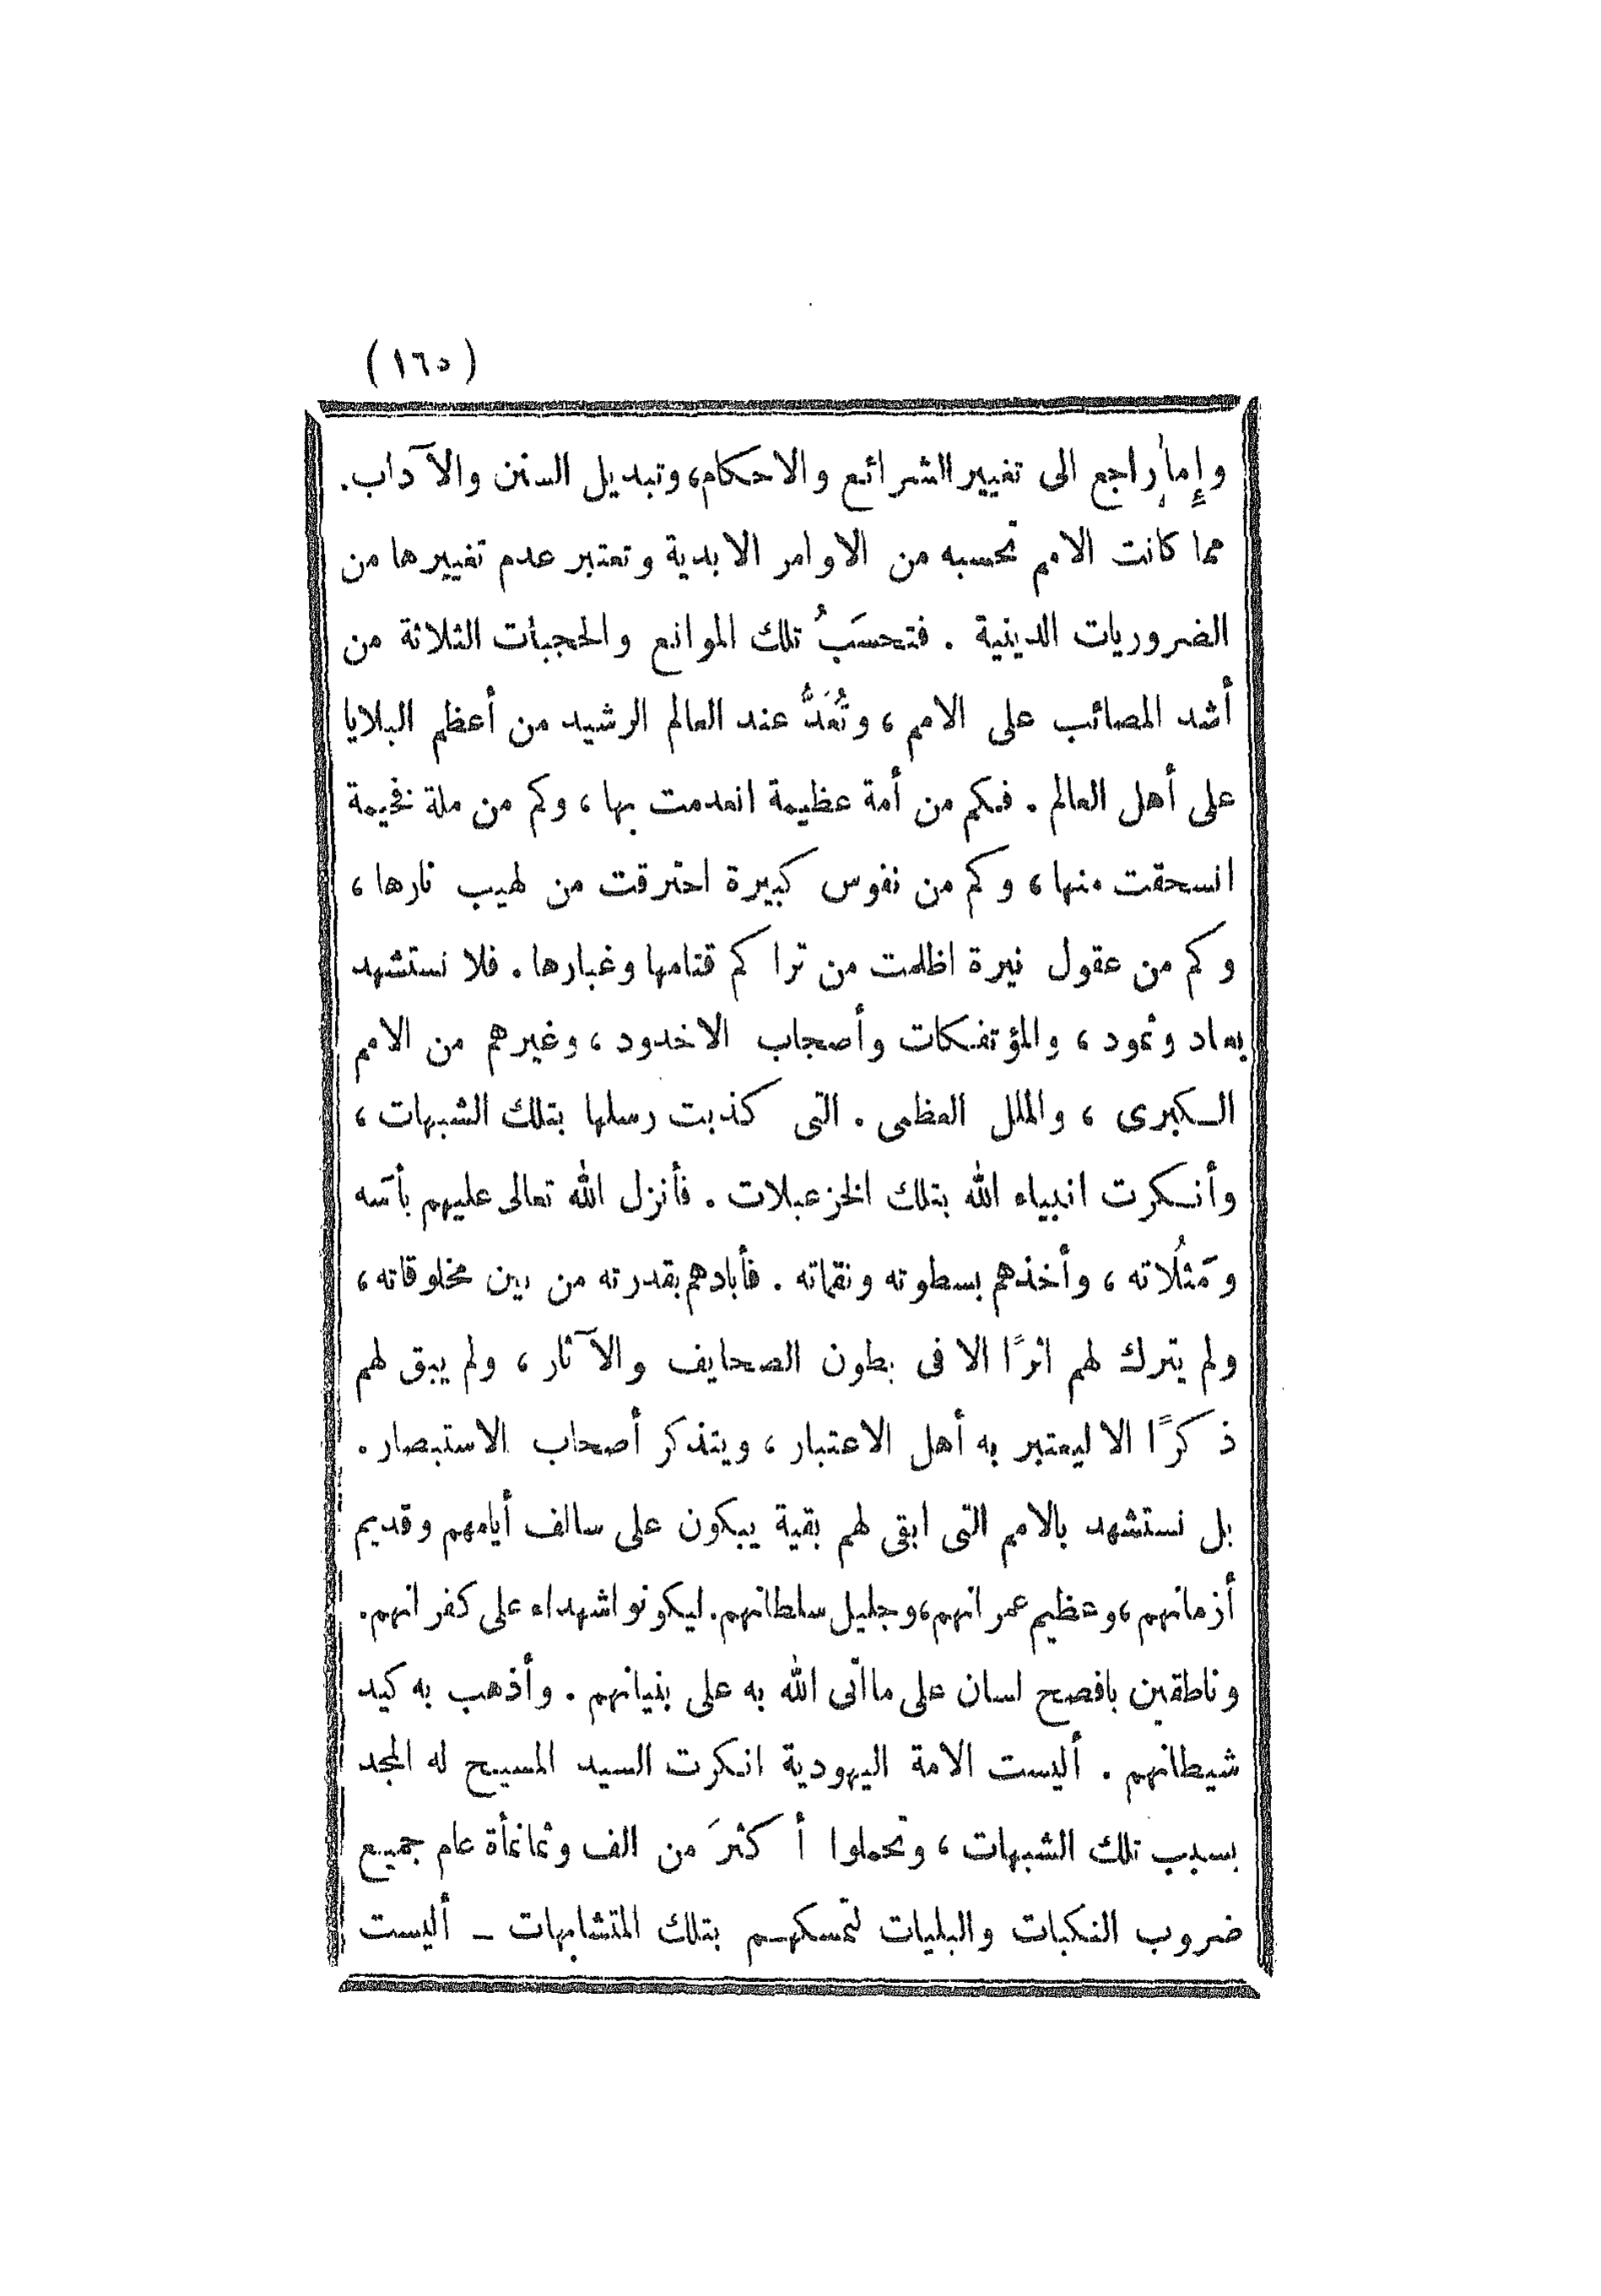 (١٦٥)
وإما راجع الى تغيير الشرائع والاحكام، وتبديل السنن والآداب.
مما كانت الامم تحسبه من الاوامر الابدية وتعتبر عدم تغييرها من
الضروريات الدينية . فتحسَبُ تلك الموانع والحجبات الثلاثة من
أشد المصائب على الامم ، وتُعَدُّ عند العالم الرشيد من أعظم البلايا
على أهل العالم . فكم من أمة عظيمة انعدمت بها ، وكم من ملة فخيمة
انسحقت منها ، وكم من نفوس كبيرة احترقت من لهيب نارها ،
وكم من عقول نيرة اظلمت من تراكم قتامها وغبارها . فلا نستشهد
بعاد وثمود ، والمؤتفكات وأصحاب الاخدود ، وغيرهم من الامم
الكبرى ، والملل العظمى . التى كذبت رسلها بتلك الشبهات ،
وأنكرت انبياء الله بتلك الخزعبلات . فأنزل الله تعالى عليهم بأسه
ومَثُلاته ، وأخذهم بسطوته ونقماته . فأبادهم بقدرته من بين مخلوقاته ،
ولم يترك لهم اثرًا الا فى بطون الصحايف والآثار ، ولم يبق لهم
ذكرًا الا ليعتبر به أهل الاعتبار ، ويتذكر أصحاب الاستبصار .
بل نستشهد بالامم التى ابقى لهم بقية يبكون على سالف أيامهم وقديم
أزمانهم ، وعظيم عمرانهم ، وجليل سلطانهم . ليكونوا شهداء على كفرانهم .
وناطقين بافصح لسان على ماأتى الله به على بنيانهم . وأذهب به كيد
شيطانهم . أليست الامة اليهودية انكرت السيد المسيح له المجد
بسبب تلك الشبهات ، وتحملوا أكثرَ من الف وثمانمأة عام جميع
ضروب النكبات والبليات لتمسكهم بتلك المتشابهات ــ أليست